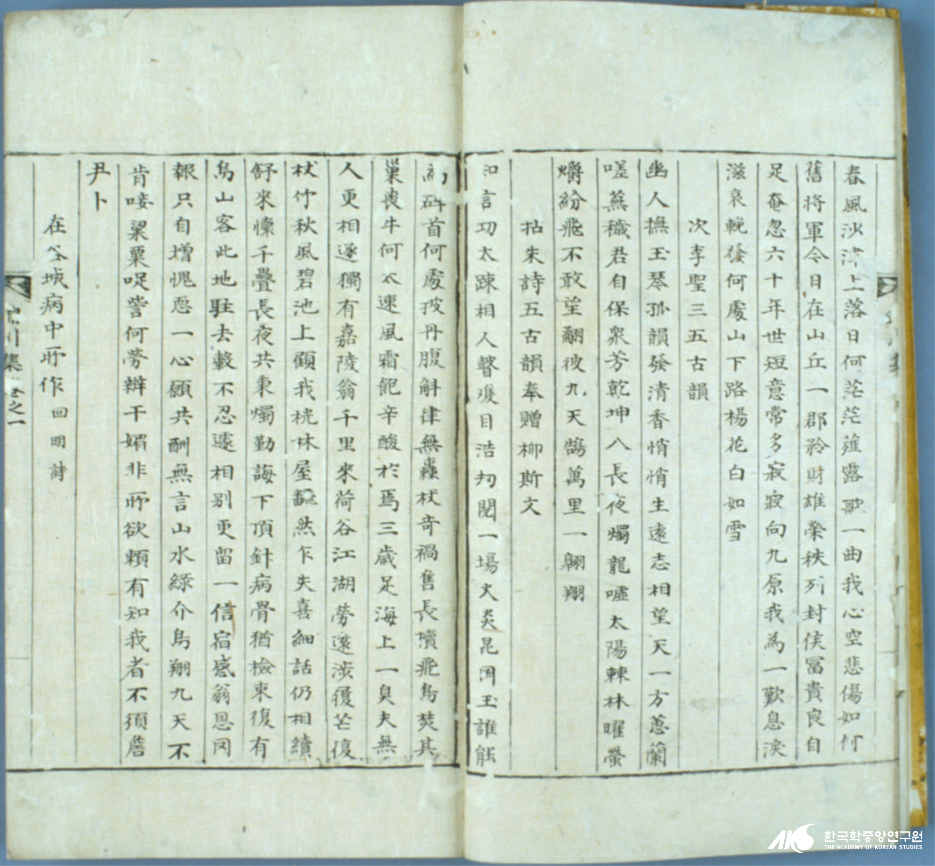 春風沙津上落日何茫茫薤露歌一曲我心空悲傷如何
舊將軍今日在山丘一郡矜財雄榮秩列封侯冨貴良自
足奄忽六十年世短意常多寂寂向九原我為一歎息淚
滋哀輓發何處山下路楊花白如雪
次李聖三五古韻
幽人撫玉琴孤韻發清香悄悄生遠志相望天一方蕙蘭
嗟蕪穢君自保衆芳乾坤八長夜燭龍噓太陽棘林曜螢
爝紛飛不敢望翻彼九天鵠萬里一翺翔
拈朱詩五古韻奉贈柳斯文
知言功太踈相人瞽瓊目浩刼閱一場火炎昆岡玉誰能
卨碎首何處披丹腹斛律無蠹杖奇禍售長牘飛鳥焚其
巢喪牛何太速風霜飽辛酸於焉三歲足海上一臭夫無
人更相逐獨有嘉陵翁千里來荷谷江湖勞遠涉復芒復
杖竹秋風碧池上顧我桄榔屋飜然乍失喜細話仍相續
舒來懷千疊長夜共秉燭勤誨下頂針病骨猶檢束復有
鳥山客此地駐去轂不忍遽相别更留一信宿感翁恩罔
報只自增愧恧一心願共酬無言山水綠介鳥翔九天不
肯唼粱粟哫訾何勞辨干媚非所欲賴有知我者不須詹
尹卜
在谷城病中所作 回明詩
川集 全之一
한국학중앙연구원
THE ACADEMY OF KOREAN STUDIES
AKS